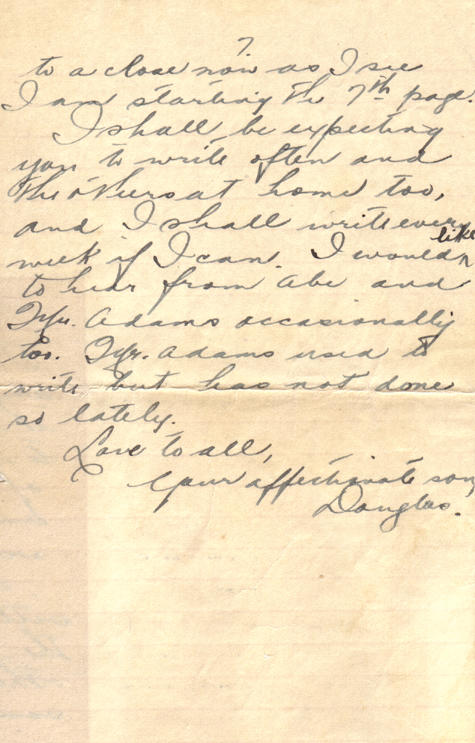 7.
to a close now as I see
I am starting the 7th page.
I shall be expecting
you to write often and
the others at home too,
and I shall write every
week if I can. I would like
to hear from Abe and
Mr. Adams occasionally
too. Mr. Adams used to
write but has not done
so lately.
Love to all,
Your affectionate son,
Douglas.